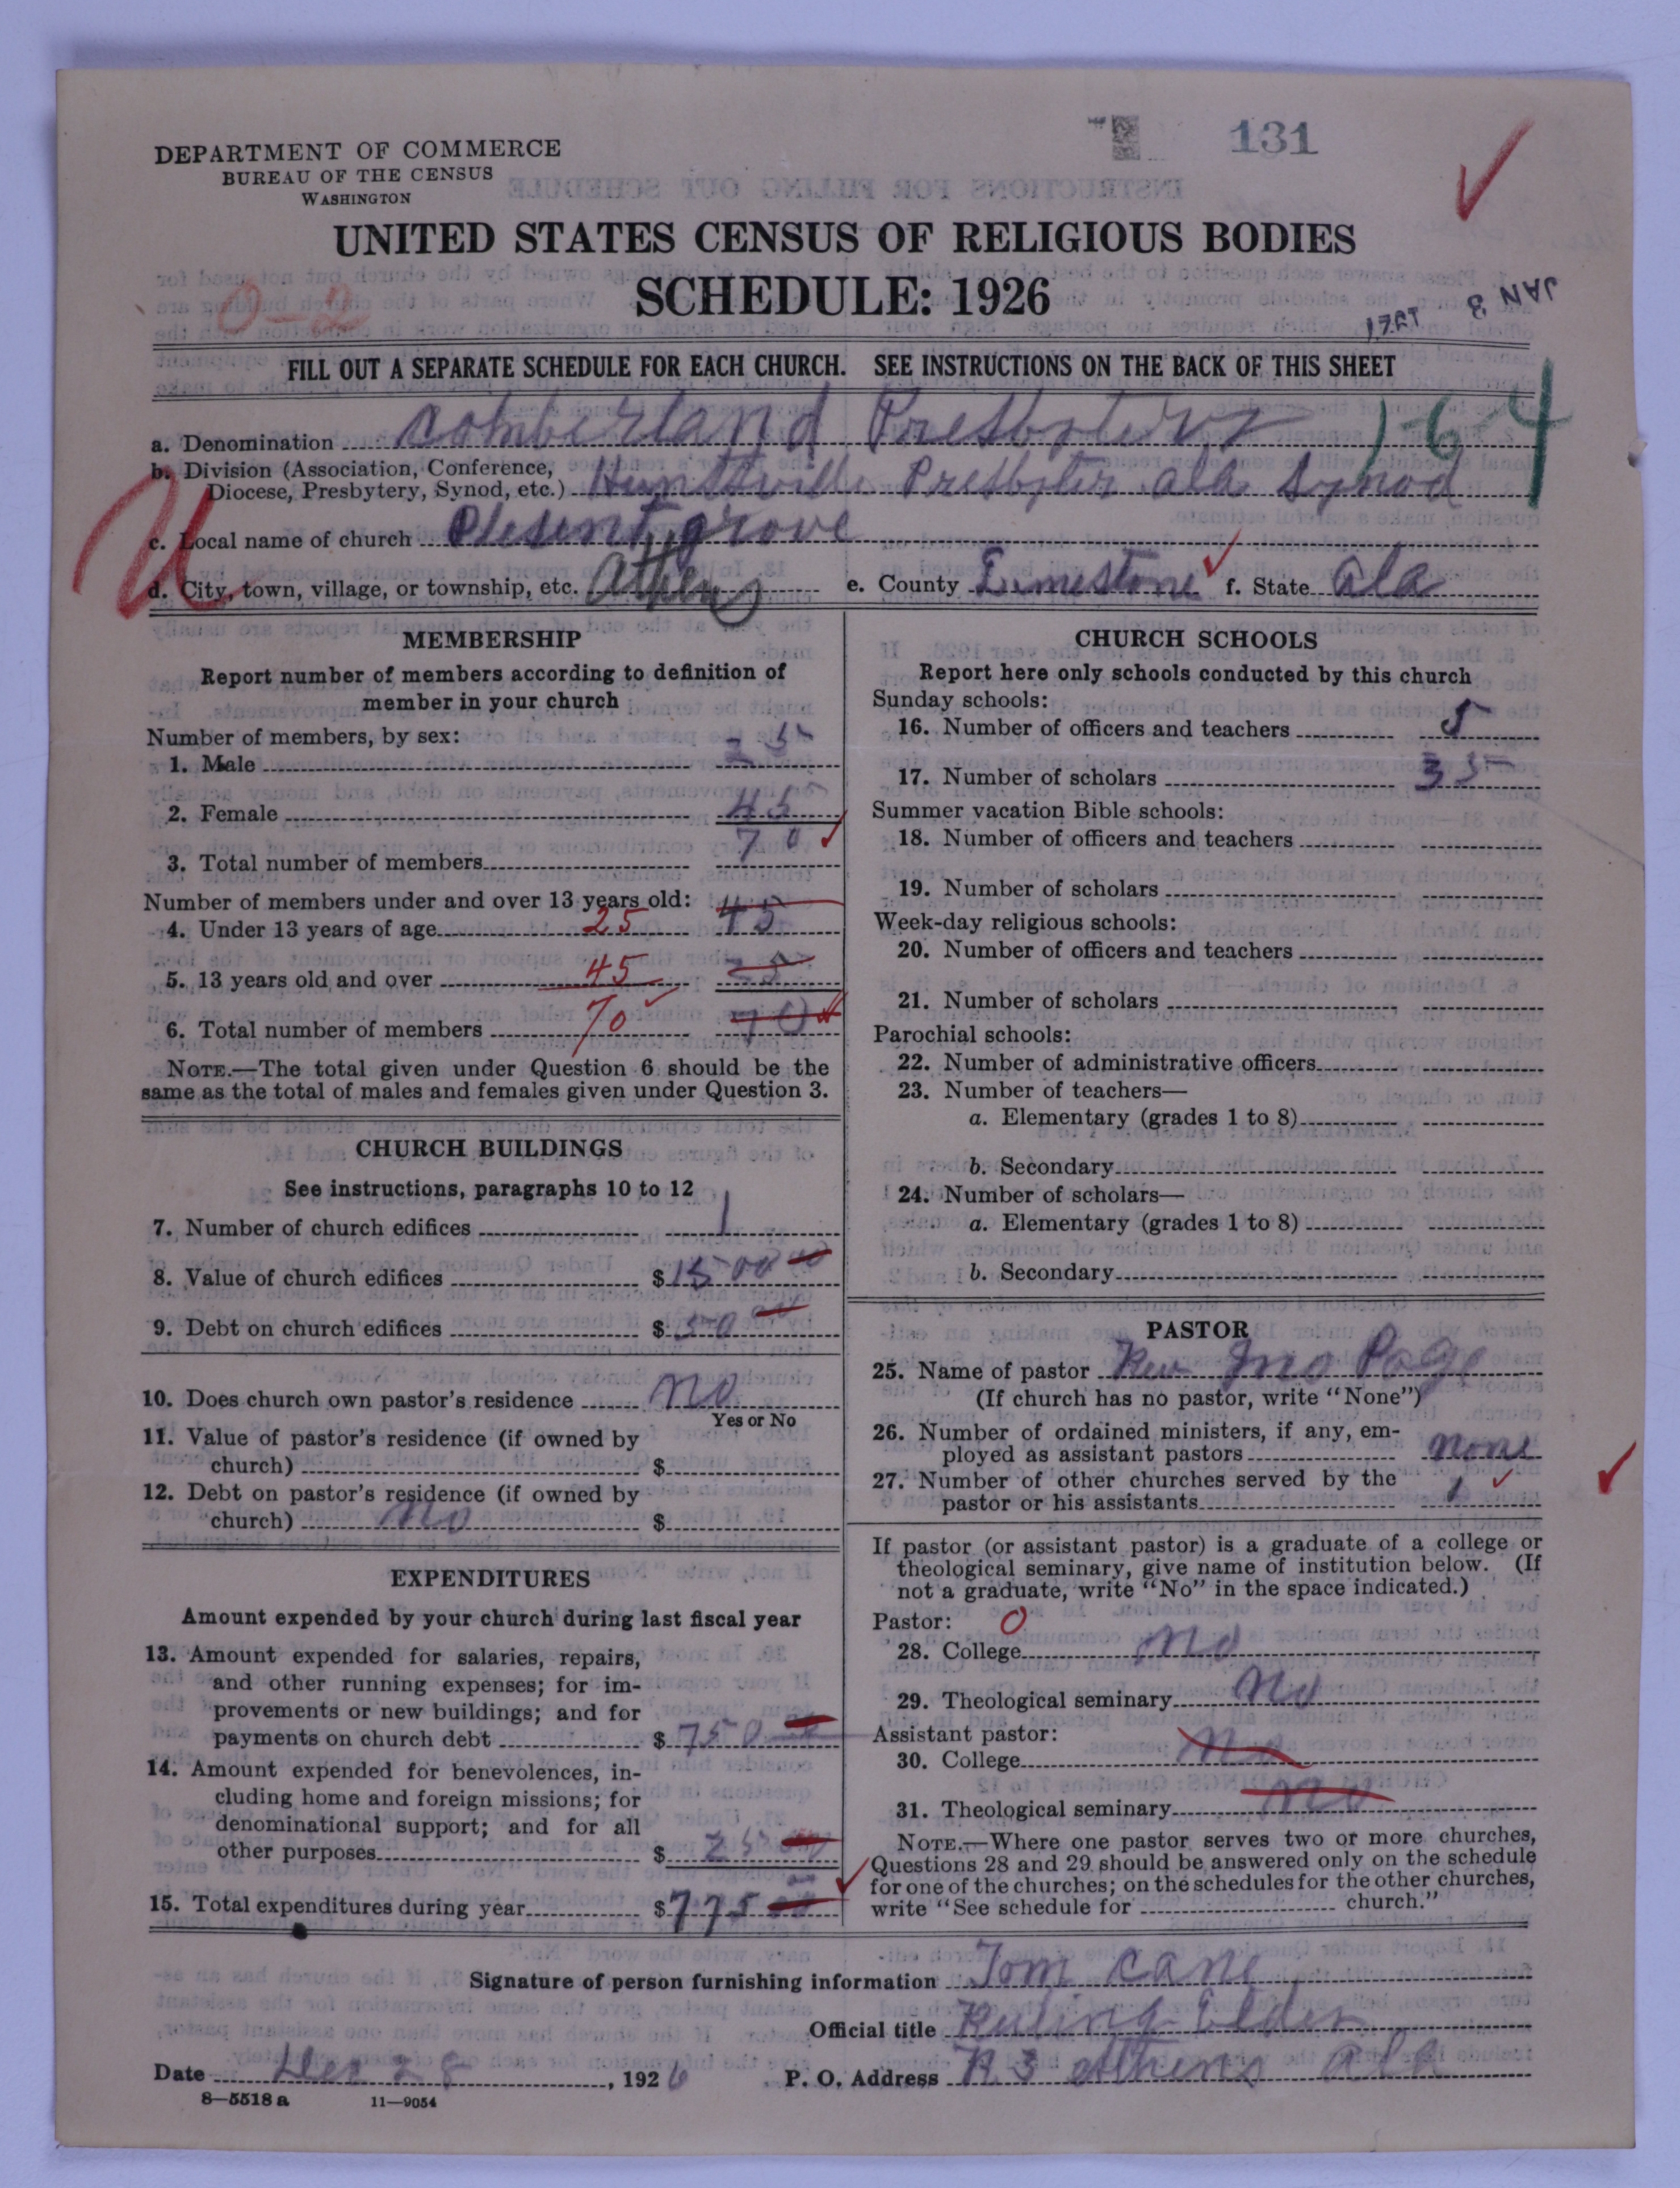 131
DEPARTMENT OF COMMERCE
BUREAU OF THE CENSUS
WASHINGTON
UNITED STATES CENSUS OF RELIGIOUS BODIES
SCHEDULE: 1926
0-2
JAN 3
FILL OUT A SEPARATE SCHEDULE FOR EACH CHURCH. SEE INSTRUCTIONS ON THE BACK OF THIS SHEET
a. Denomination Comberland Presbytery 1-64
b. Division (Association, Conference,
Diocese, Presbytery, Synod, etc.) Huntsville Presbyter ala Synod
c. Local name of church Plesent grove
d. City, town, village, or township, etc. Athens e. County Limestone f. State Ala
MEMBERSHIP
Report number of members according to definition of
member in your church
Number of members, by sex:
1. Male 25
2. Female 45
3. Total number of members 70
Number of members under and over 13 years old:
4. Under 13 years of age 25 45
5. 13 years old and over 45 25
6. Total number of members 70 70
NOTE.—The total given under Question 6 should be the
same as the total of males and females given under Question 3.
CHURCH BUILDINGS
See instructions, paragraphs 10 to 12
7. Number of church edifices 1
8. Value of church edifices $1500 00
9. Debt on church edifices $50 00
10. Does church own pastor's residence no
Yes or No
11. Value of pastor's residence (if owned by
church) $
12. Debt on pastor's residence (if owned by
church) no $
EXPENDITURES
Amount expended by your church during last fiscal year
13. Amount expended for salaries, repairs,
and other running expenses; for im-
provements or new buildings; and for
payments on church debt $750 00
14. Amount expended for benevolences, in-
cluding home and foreign missions; for
denominational support; and for all
other purposes $25 00
15. Total expenditures during year $775 00
CHURCH SCHOOLS
Report here only schools conducted by this church
Sunday schools:
16. Number of officers and teachers 5
17. Number of scholars 35
Summer vacation Bible schools:
18. Number of officers and teachers
19. Number of scholars
Week-day religious schools:
20. Number of officers and teachers
21. Number of scholars
Parochial schools:
22. Number of administrative officers
23. Number of teachers—
a. Elementary (grades 1 to 8)
b. Secondary
24. Number of scholars—
a. Elementary (grades 1 to 8)
b. Secondary
PASTOR
25. Name of pastor Rev Jno Page
(If church has no pastor, write "None")
26. Number of ordained ministers, if any, em-
ployed as assistant pastors none
27. Number of other churches served by the
pastor or his assistants 1
If pastor (or assistant pastor) is a graduate of a college or
theological seminary, give name of institution below. (If
not a graduate, write "No" in the space indicated.)
Pastor: 0
28. College no
29. Theological seminary no
Assistant pastor:
30. College no
31. Theological seminary no
NOTE.—Where one pastor serves two or more churches,
Questions 28 and 29 should be answered only on the schedule
for one of the churches; on the schedules for the other churches,
write "See schedule for church."
Signature of person furnishing information Tom Cane
Official title Ruling Elder
Date Dec 28, 1926 P. O. Address R 3 Athens Ala
8—5518 a 11—9054